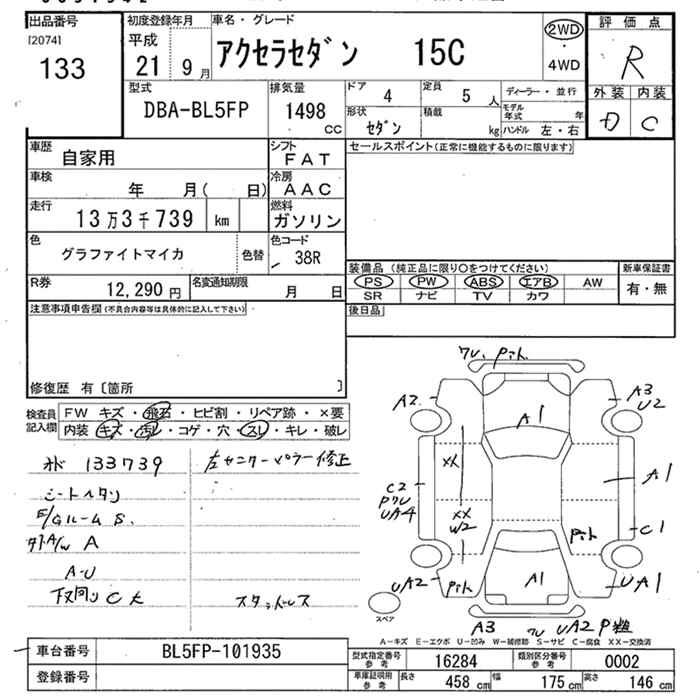 出品番号
[2074]
133
初度登録年月
平成
21 9月
車名・グレード
アクセラセダン 15C
2WD
・
4WD
評価点
R
外装 内装
D C
型式
DBA-BL5FP
排気量
1498
CC
ドア
4
定員
5人
形状
セダン
積載
kg
ディーラー・並行
モデル年式 年
ハンドル 左・右
車歴
自家用
シフト
FAT
車検
年 月( 日)
冷房
AAC
走行
13万3千739 km
燃料
ガソリン
色
グラファイトマイカ
色替
色コード
38R
R券
12,290円
名変通知期限
月 日
セールスポイント(正常に機能するものに限ります)
装備品(純正品に限り○をつけてください)
新車保証書
PS PW ABS エアB AW
有・無
SR ナビ TV カワ
後日品
注意事項申告欄(不具合内容等は具体的に記入して下さい)
修復歴 有〔箇所 〕
検査員記入欄
FW キズ・飛石・ヒビ割・リペア跡・×要
内装 キズ・汚レ・コゲ・穴・スレ・キレ・破レ
133739
左センターピラー修正
シートヘタリ
E/Gルーム S.
A
A-U
下回り C 大
スタッドレス
ワレ. Pitt.
A2
A3
U2
A1
XX
A1
C2
Pワレ
UA4
XX
W2
C1
Pitt
UA2
Pitt
A1
UA1
スペア
A3 ワレ UA2 P粒
A-キズ E-エクボ U-凹み W-補修跡 S-サビ C-腐食 XX-交換済
車台番号
BL5FP-101935
登録番号
型式指定番号
参考
16284
類別区分番号
参考
0002
車庫証明用
参考
長さ
458 cm
幅
175 cm
高さ
146 cm